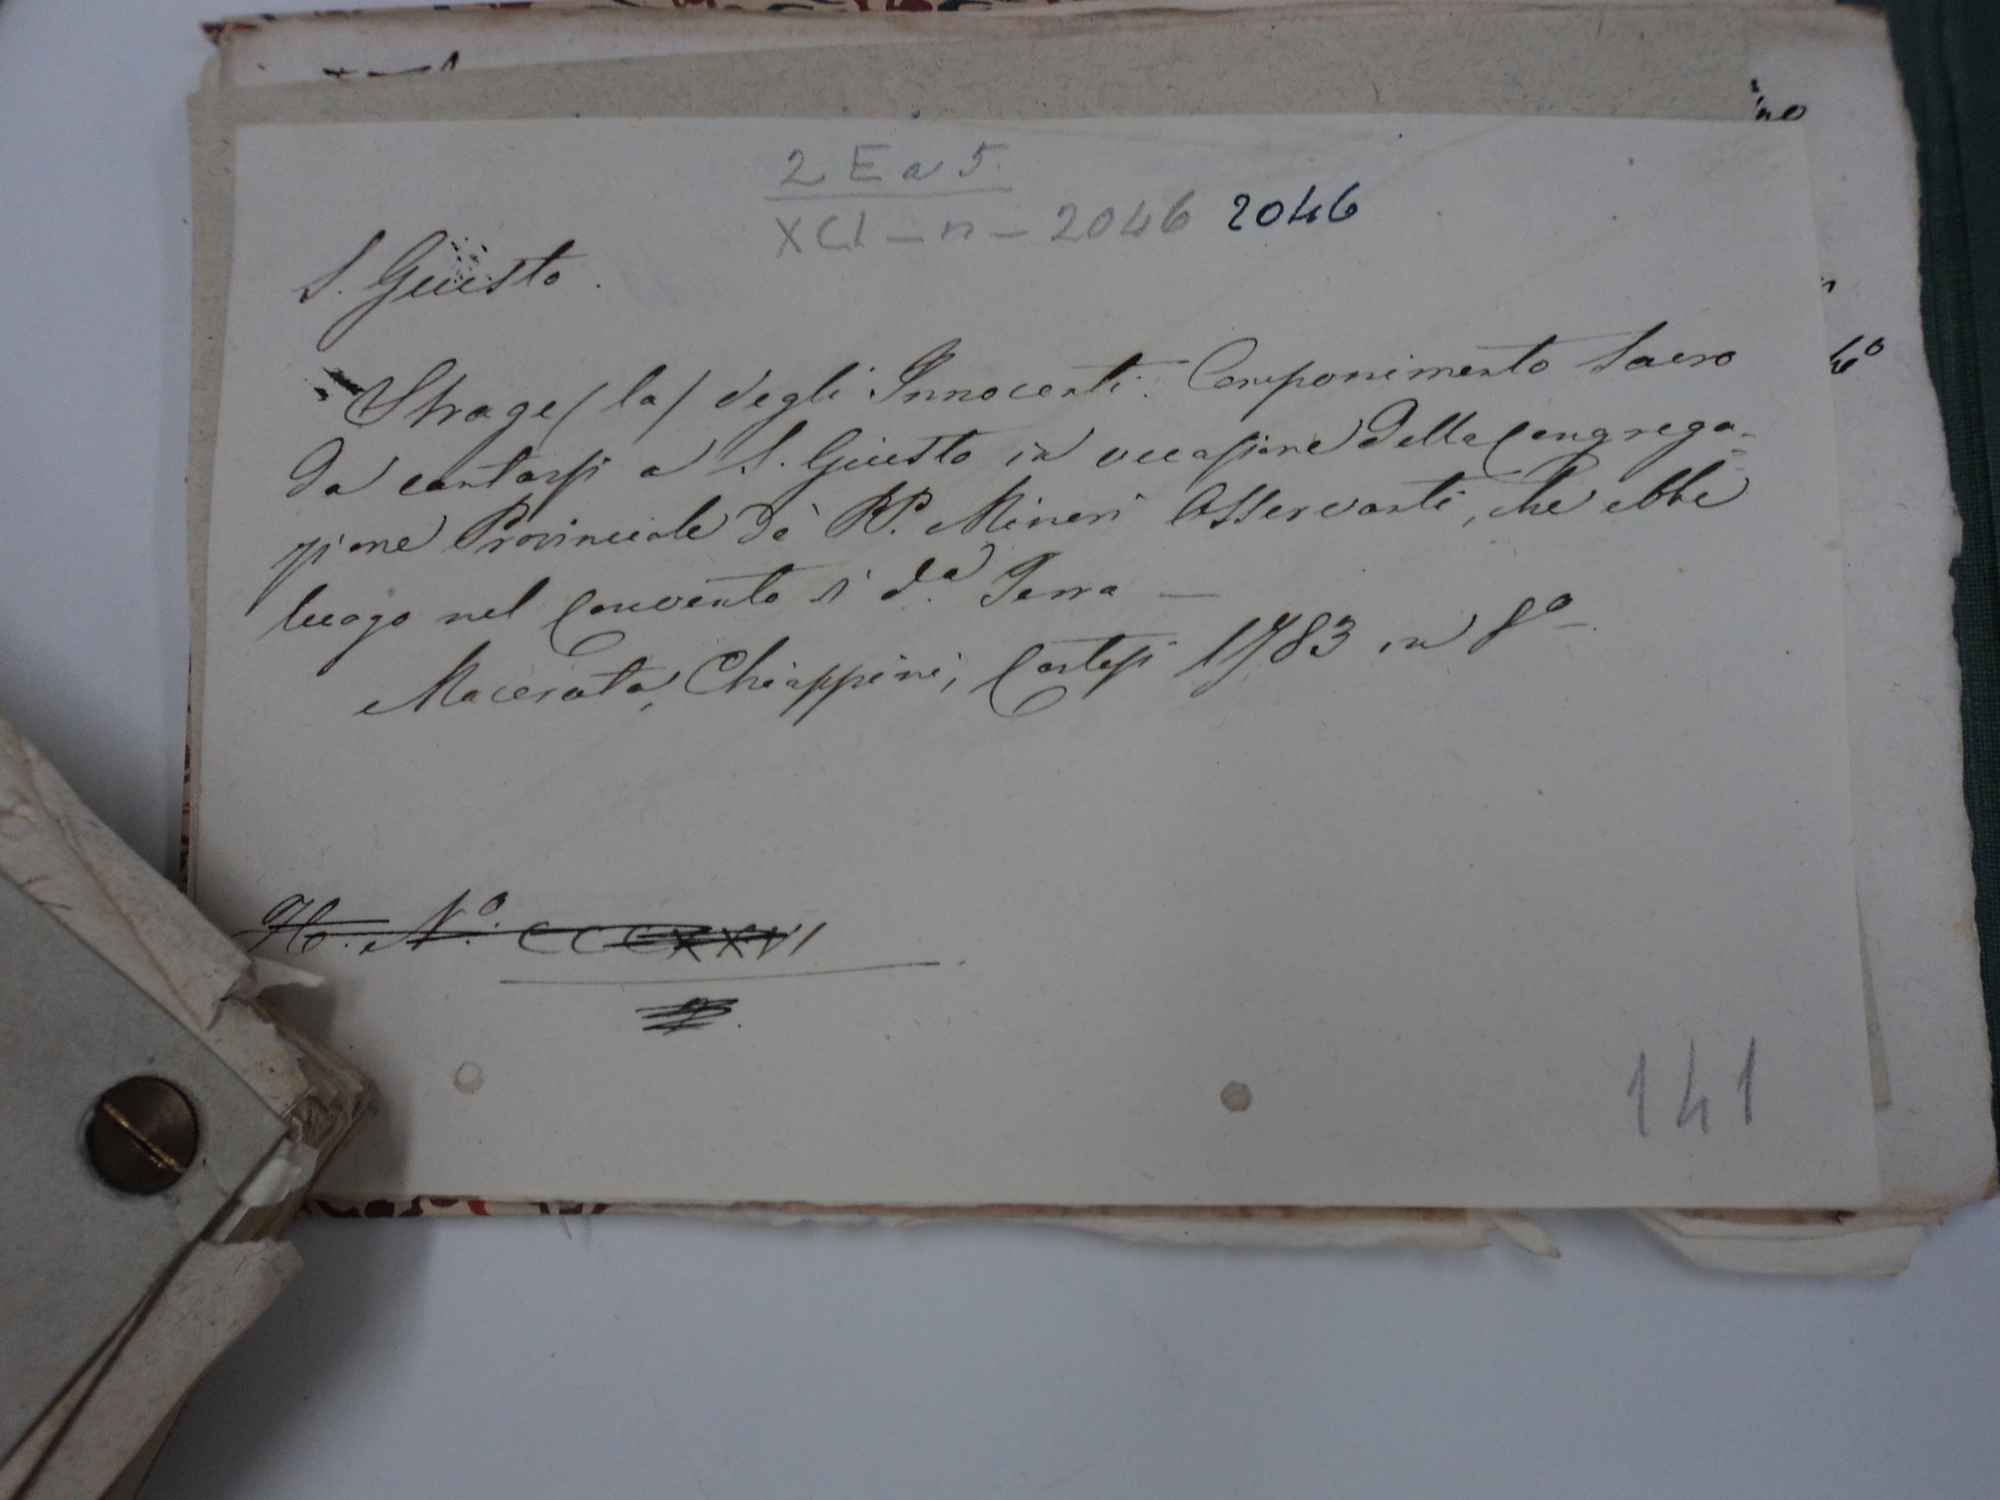 2 E a 5.
XCI - n - 2046 2046
S. Giusto.
Strage (la) degli Innocenti. Componimento Sacro
da cantarsi a S. Giusto in occasione della Congrega-
zione Provinciale dè PP. Minori Osservanti, che ebbe
luogo nel Convento di d.a Terra —
Macerata, Chiappini, Cortesi 1783 in 8o
N.o CCCXXVI
141